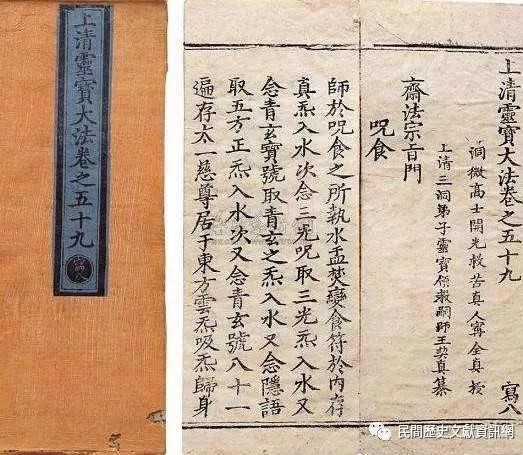 上清靈寶大法卷之五十九
上清靈寶大法卷之五十九 寫八
洞微高士開光救苦真人寗全真授
上清三洞弟子靈寶領教嗣師王契真纂
齋法宗旨門
呪食
師於呪食之所執水盂焚變食符於內存
真炁入水次念三光呪取三光炁入水又
念青玄寶號取青玄之炁入水又念隱語
取五方正炁入水次又念青玄號八十一
遍存太一慈尊居于東方雲炁吸炁歸身
民間歷史文獻資訊網